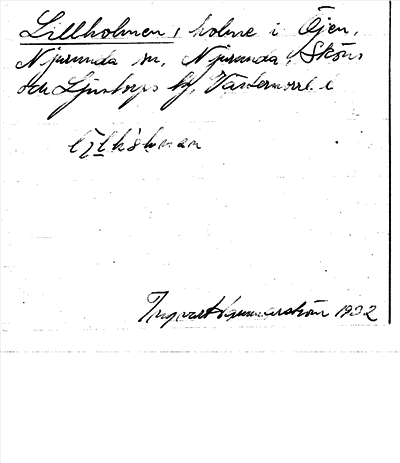 Lillholmen, holme i Öjen,
Njurunda sn, Njurunda, Sköns
och Ljustorps hd, Västernorrl. l
Ingvar Hammarström 1932